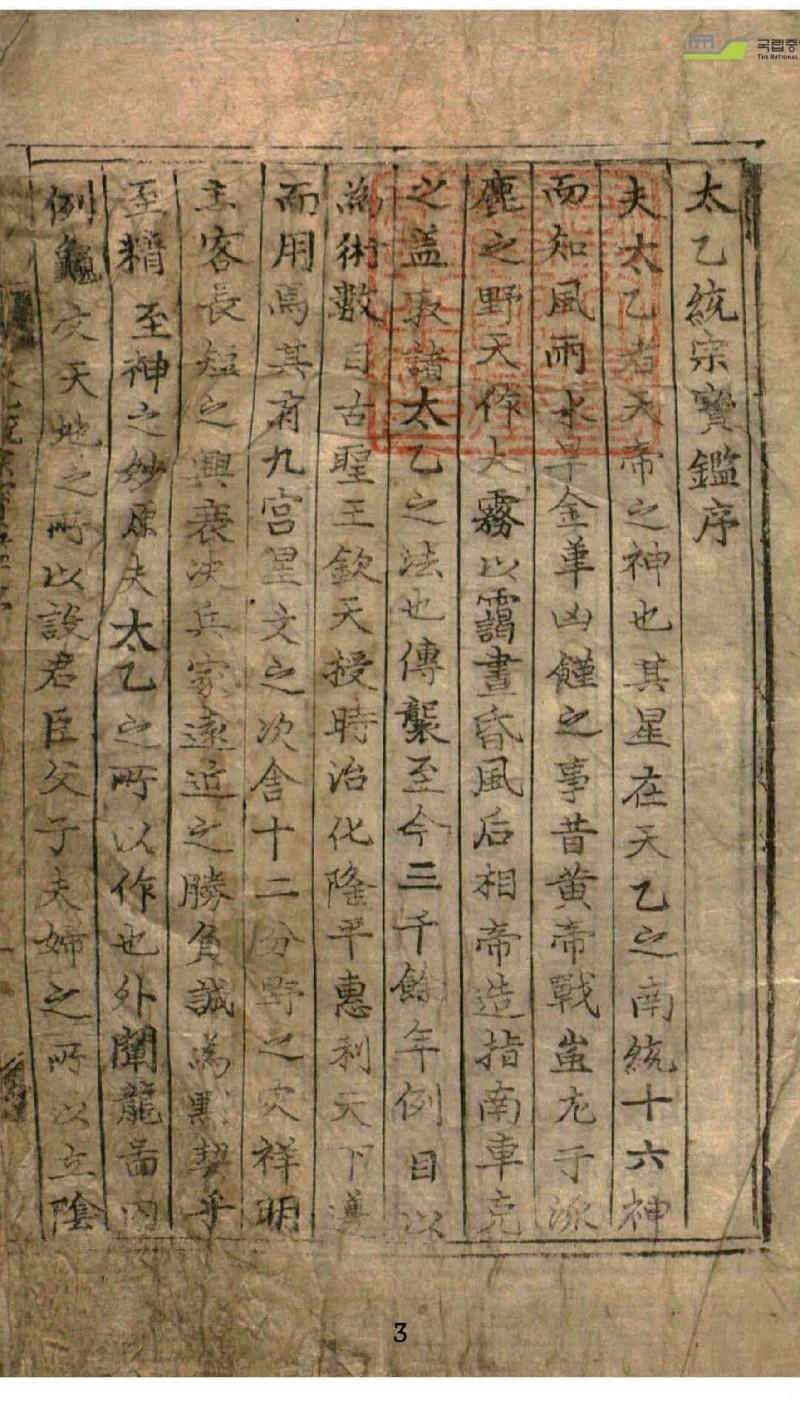 太乙統宗寳鑑序
夫太乙者天帝之神也其星在天乙之南統十六神
而知風雨水旱金革凶饉之事昔黄帝戰蚩尤于涿
鹿之野天作大霧以靄晝昏風后相帝造指南車克
之盖取諸太乙之法也傳襲至今三千餘年例目以
為術數自古聖王欽天授時治化隆平惠利天下遵
而用焉其有九宮星文之次舎十二分野之灾祥明
主客長短之興衰决兵家遠近之勝負誠為黙契乎
至精至神之妙原夫太乙之所以作也外闡龍啚內
例龜文天地之所以設君臣父子夫婦之所以立陰
국립중앙
THE NATIONAL
3